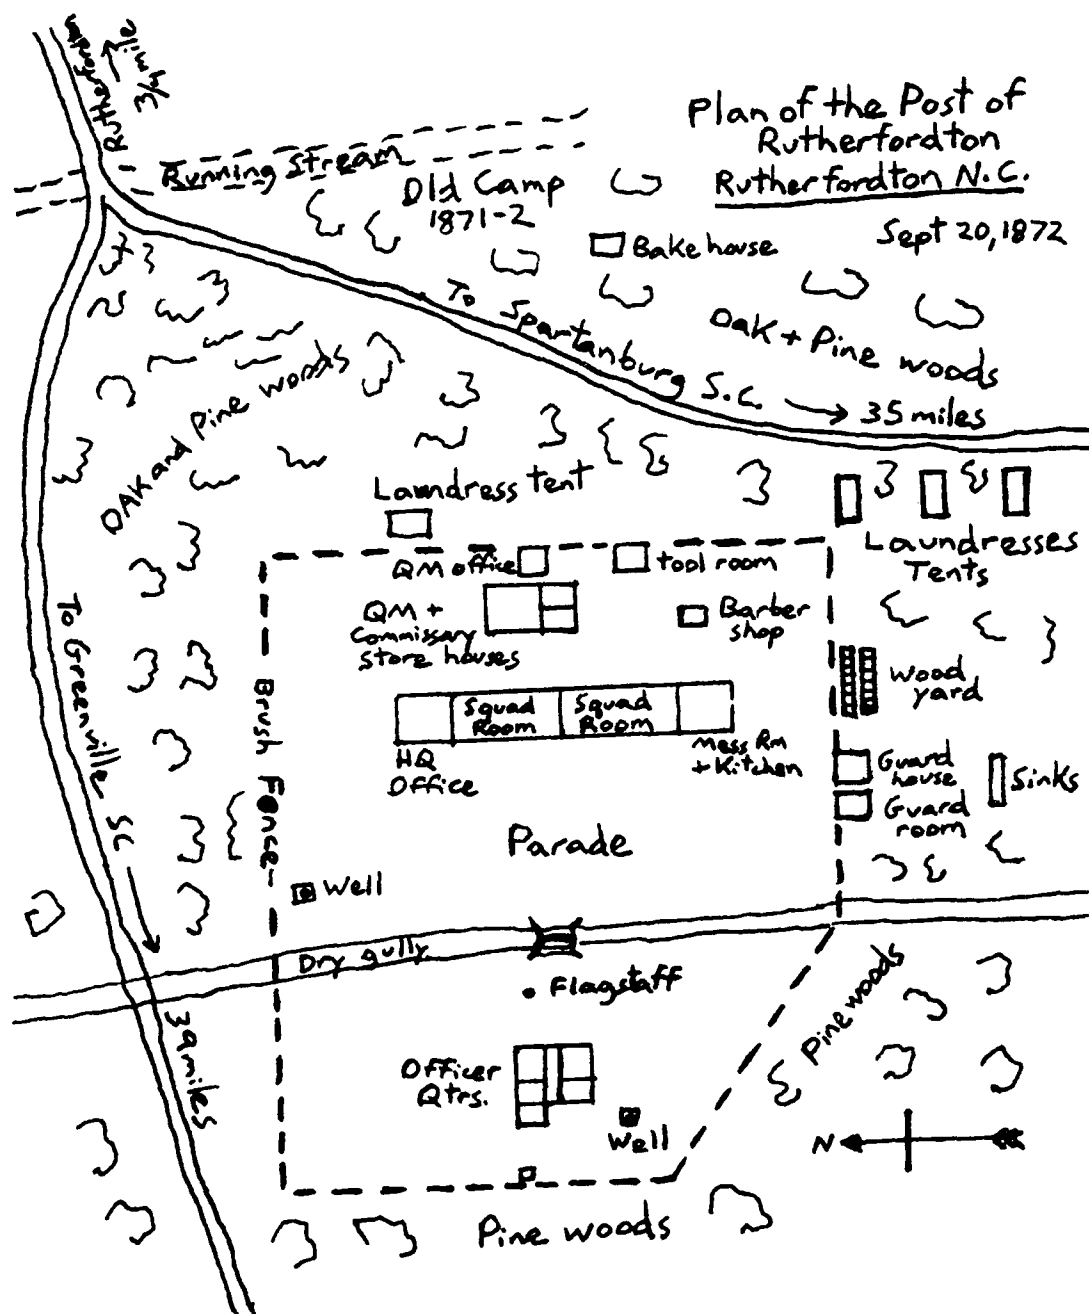 Rutherfordton
3/4 mile
Plan of the Post of
Rutherfordton
Rutherfordton N.C.
Sept 20, 1872
Running Stream
Old Camp
1871-2
Bake house
To Spartanburg S.C.
35 miles
Oak + Pine woods
OAK and Pine woods
Laundress tent
Laundresses
Tents
QM office
tool room
QM +
Commissary
Store houses
Barber
shop
Wood
yard
Squad
Room
Squad
Room
HQ
Office
Mess Rm
+ Kitchen
Guard
house
Guard
room
Sinks
To Greenville SC
39 miles
Brush Fence
Parade
Well
Dry gully
Flagstaff
Pine woods
Officer
Qtrs.
Well
N
Pine woods